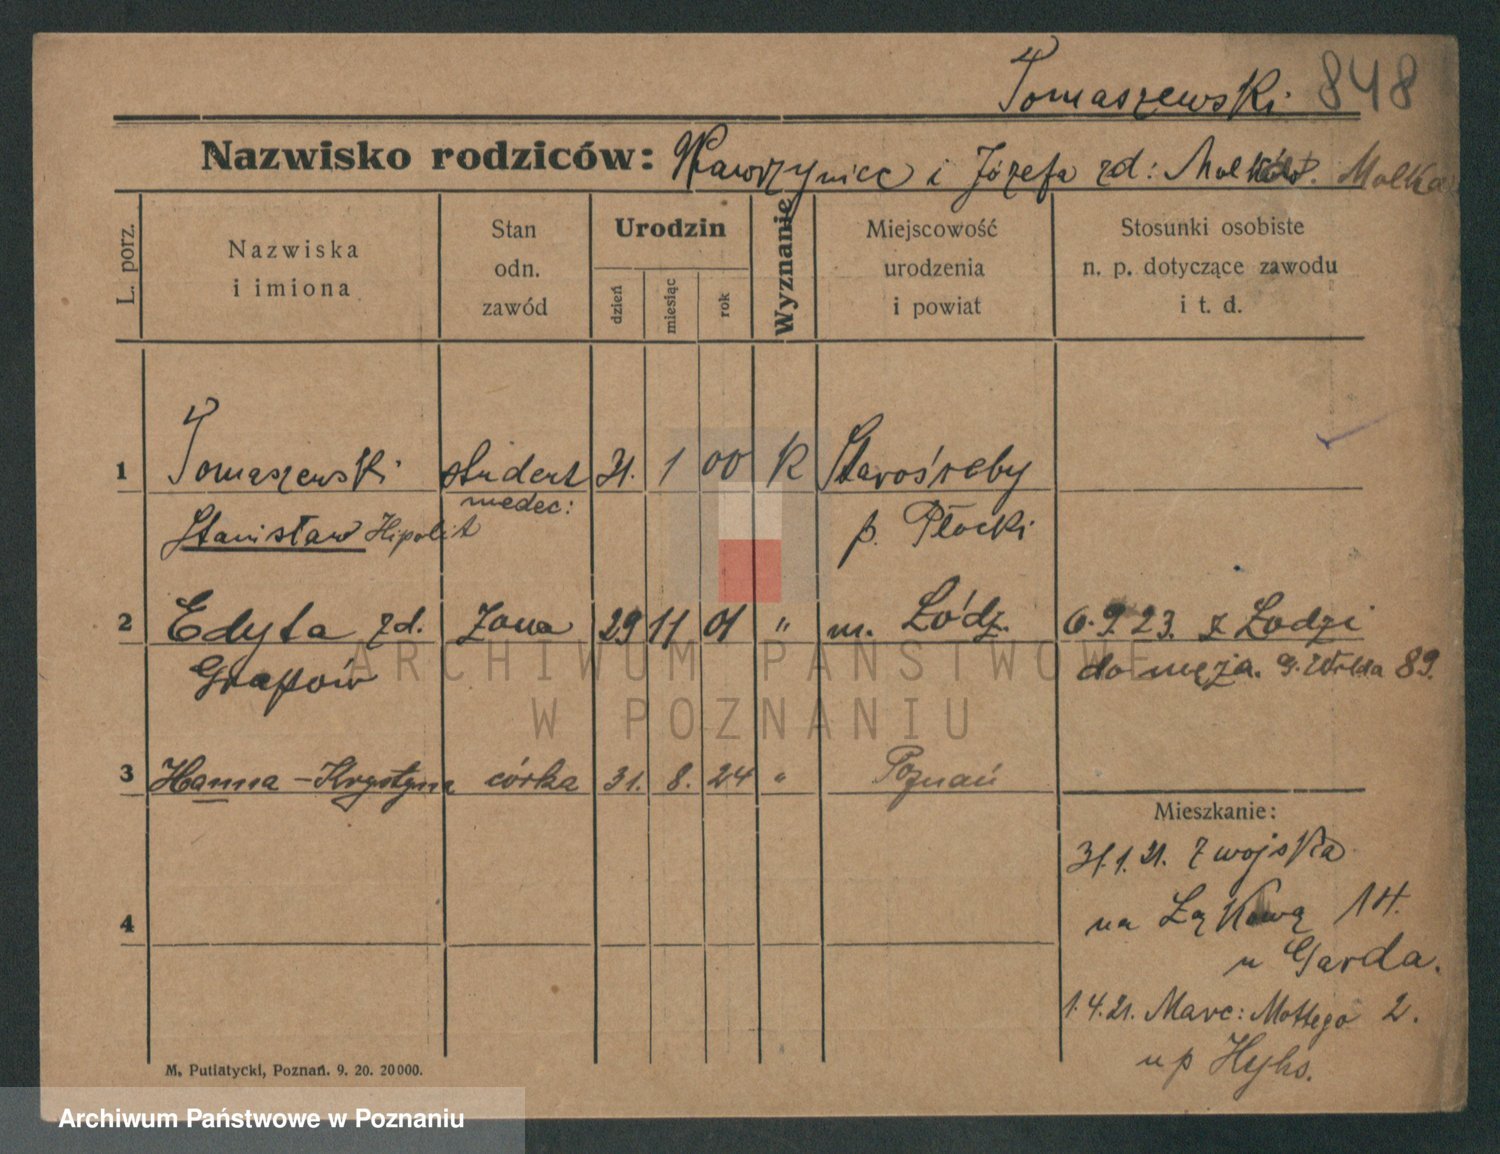 Tomaszewski 848
Nazwisko rodziców: Wawrzyniec i Józefa zd: Molka
L. porz.
Nazwiska
i imiona
Stan
odn.
zawód
Urodzin
dzień
miesiąc
rok
Wyznanie
Miejscowość
urodzenia
i powiat
Stosunki osobiste
n. p. dotyczące zawodu
i t. d.
1 Tomaszewski student 31. 1 00 K Starośreby
medec:
Stanisław Hipolit p. Płocki
2 Edyta zd. żona 29 11 01 " m. Łódz. 6.9.23. z Lodzi
Grafów do męża. G. Wilda 89.
3 Hanna - Krystyna córka 31. 8. 24 " Poznań
Mieszkanie:
31.1.21. z wojska
4 na Łąkową 14.
u Garda.
1.4.21. Marc: Mottego 2.
u p
M. Putiatycki, Poznań. 9. 20. 20000.
ARCHIWUM PAŃSTWOWE
W POZNANIU
Archiwum Państwowe w Poznaniu